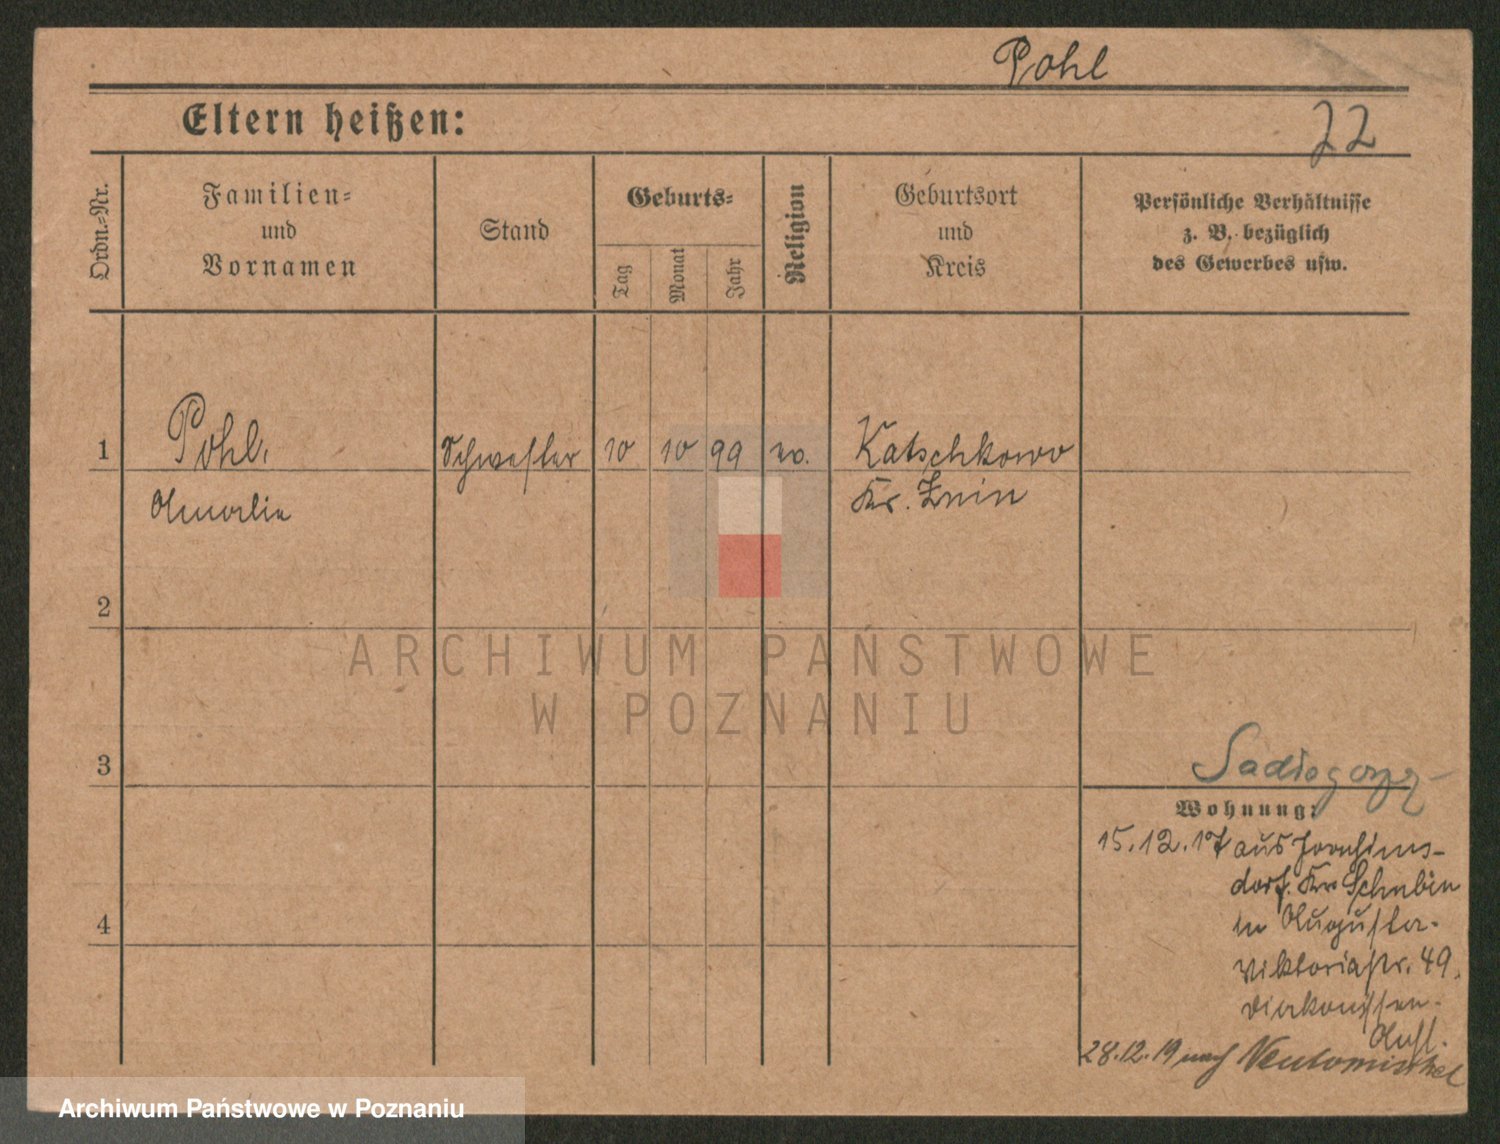 Pohl
22
Eltern heißen:
Ordn.-Nr.
Familien-
und
Vornamen
Stand
Geburts-
Tag
Monat
Jahr
Religion
Geburtsort
und
Kreis
Persönliche Verhältnisse
z. B. bezüglich
des Gewerbes usw.
1 Pohl. Schwester 10 10 99 ev. Katschkowo
Amalie Kr. Znin
2
3
4
ARCHIWUM PAŃSTWOWE
W POZNANIU
Wohnung:
15.12.17 aus Josefins-
dorf. Kr Schubin
in Augusta-
Viktoriastr. 49.
Diakonissen-
Anst.
28.12.19 nach Neutomischel
Archiwum Państwowe w Poznaniu